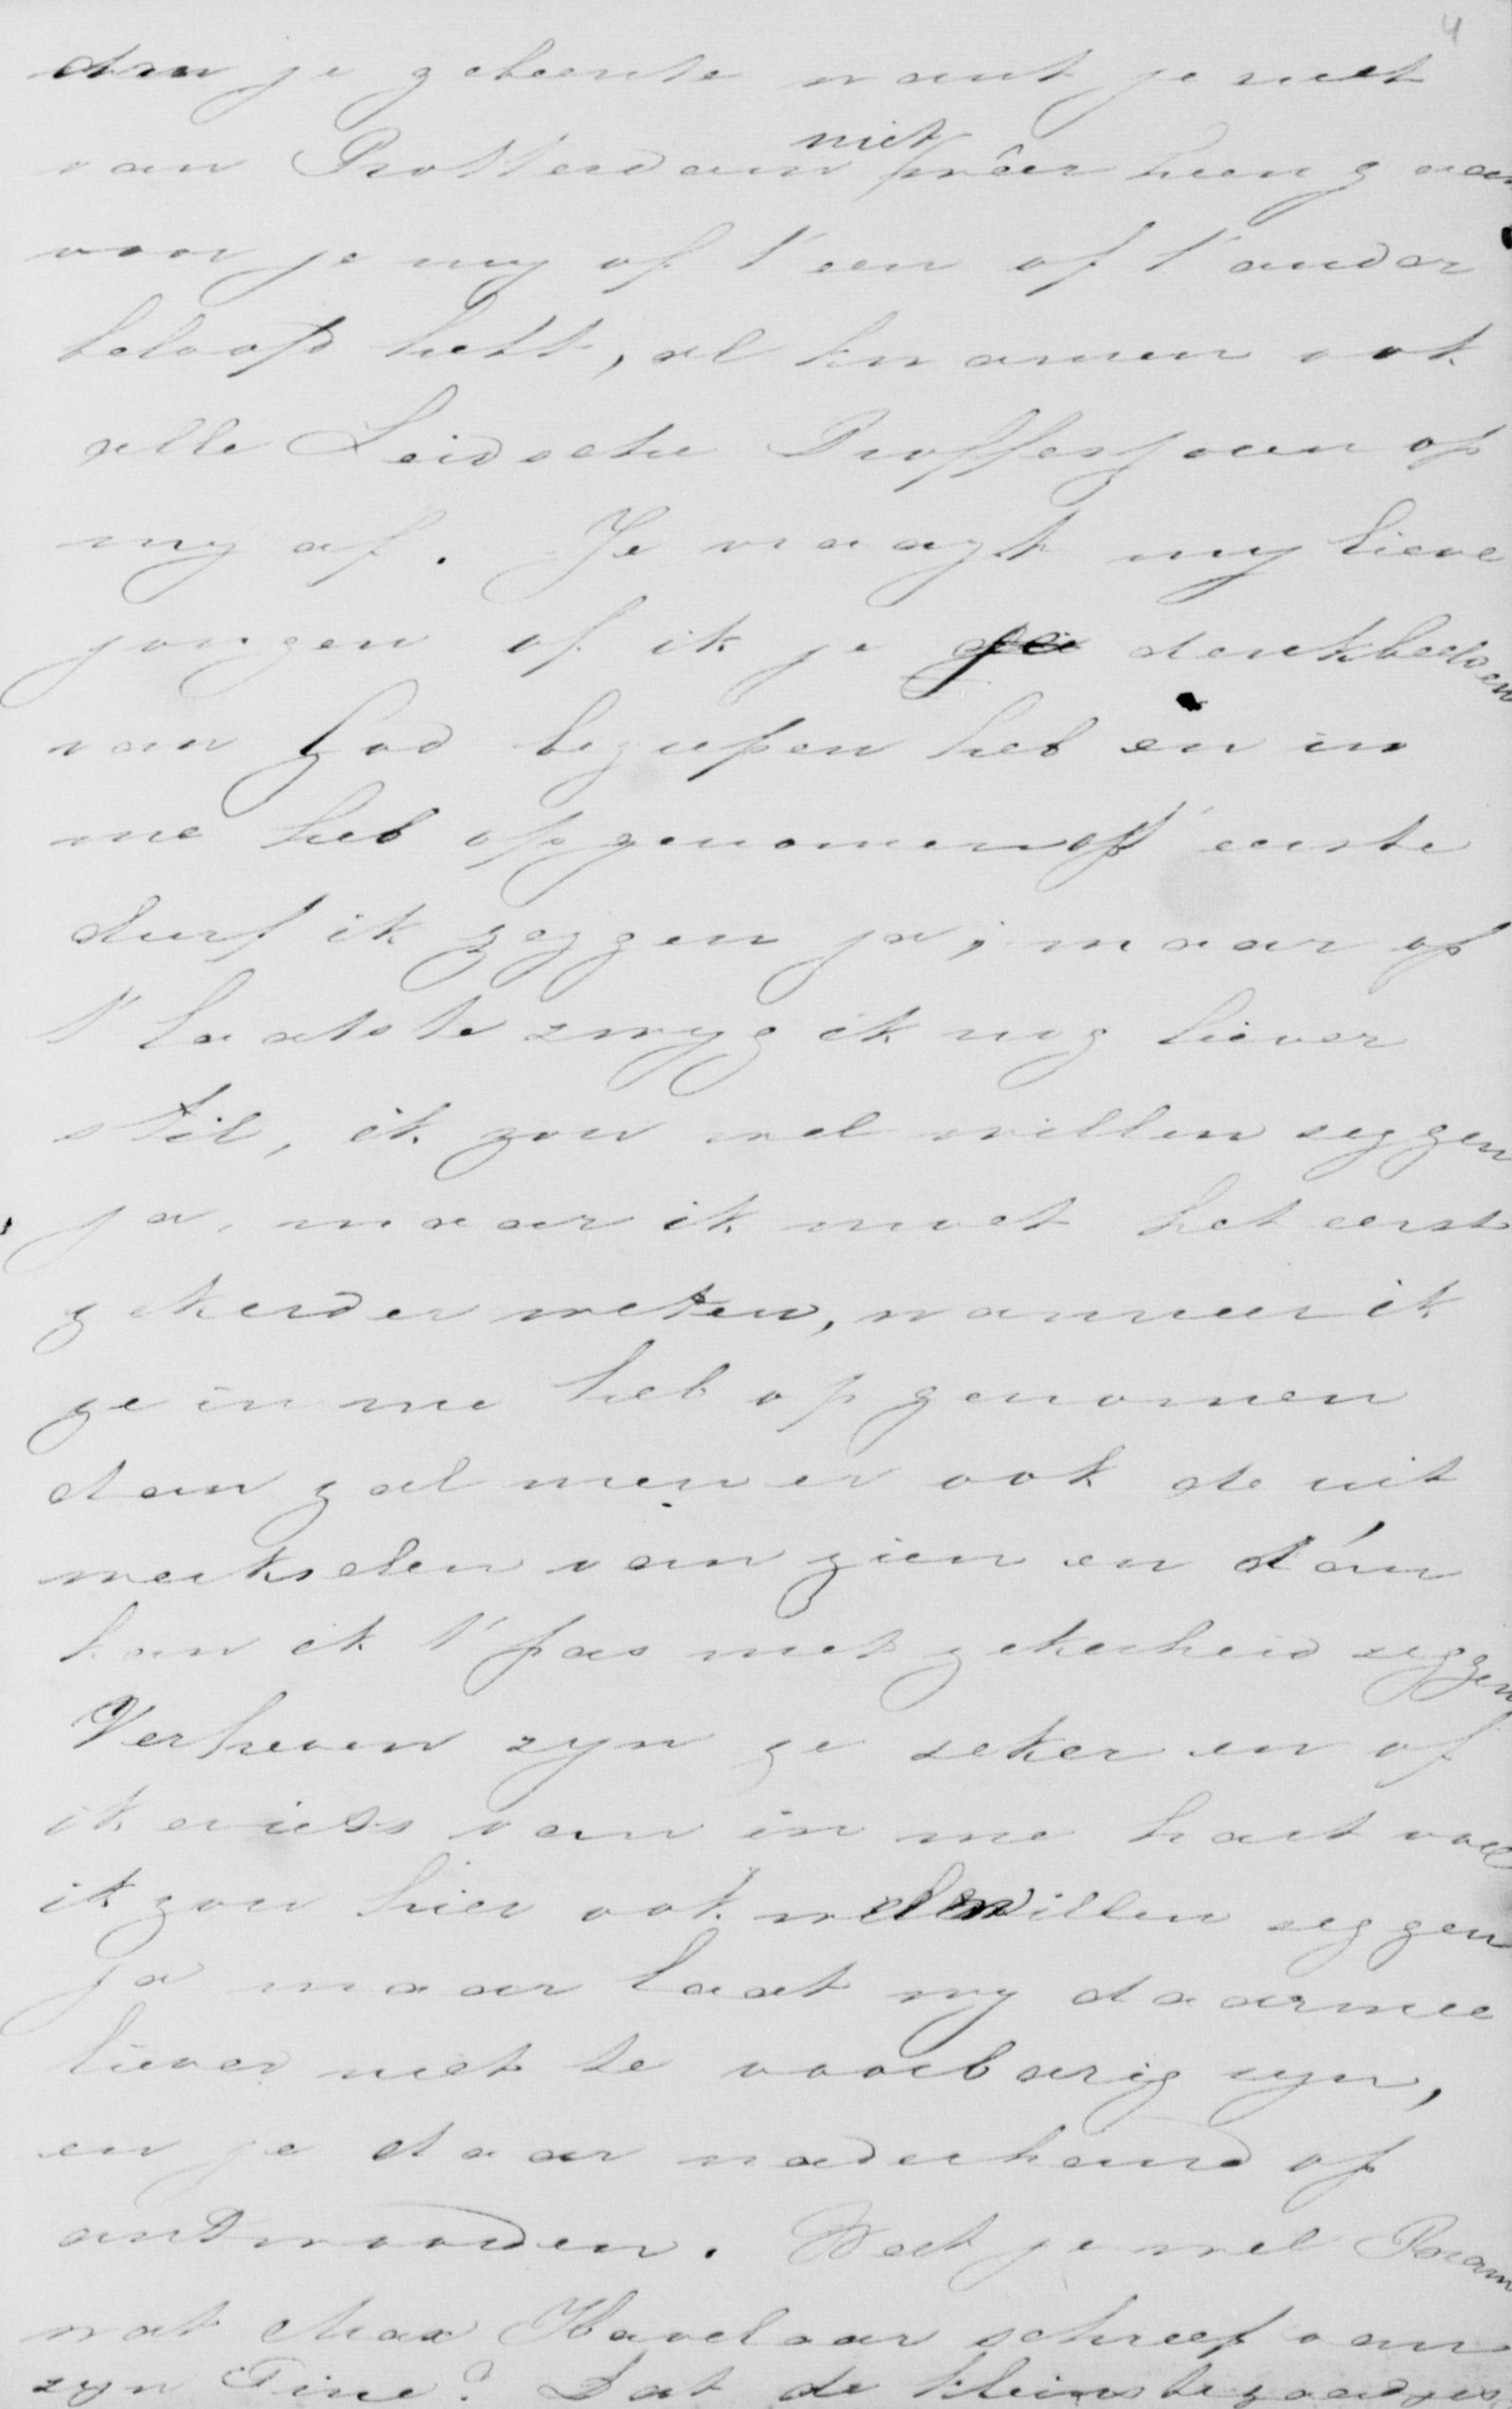 4
dan je gebeente want je met
van Rotterdam niet meêr heen gaan
voor je my of t'een of t'ander
beloofd hebt, al kwamen ook
alle Leidsche Proffessoren op
my af. Je vraagt my lieve
jongen of ik je denkbeelden
van God begrepen heb en in
me heb opgenomen op t' eerste
durf ik zeggen ja, maar op
t' laatste zwyg ik nog liever
stil, ik zou wel willen zeggen
ja, maar ik moet het eerst
zekerder weten, wanneer ik
ze in me heb opgenomen
dan zal men er ook de uit
werkselen van zien en dán
kan ik t' pas met zekerheid zeggen
Verheven zyn ze zeker en of
ik er iets van in me hart voel
ik zou hier ook wel willen zeggen
ja maar laat my daarmee
liever niet te voorbarig zyn,
en je daar naderhand op
antwoorden. Weet je wel Bram
wat Max Havelaar schreef van
zyn Tine? Dat de kleinste zaadjes